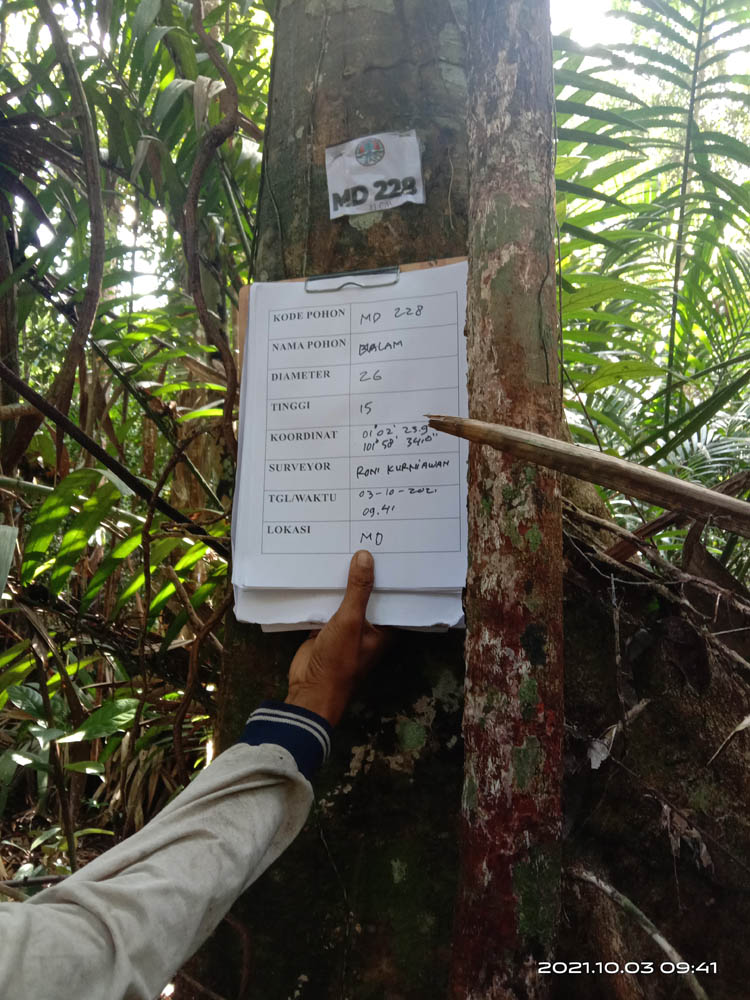 MD 228
KODE POHON MD 228
NAMA POHON BALAM
DIAMETER 26
TINGGI 15
KOORDINAT 01° 02' 23.9"
101° 58' 34.0"
SURVEYOR RONI KURNIAWAN
TGL/WAKTU 03-10-2021
09.41
LOKASI MD
2021.10.03 09:41